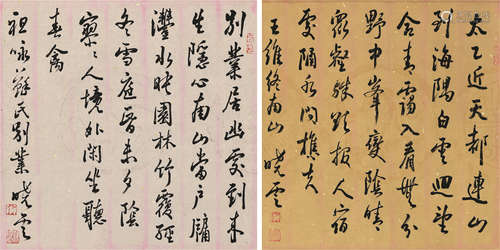 太乙近天都連山
到海隅白雲迴望
合青靄入看無分
野中峯變陰晴
眾壑殊欲投人宿
處隔水問樵夫
王維終南山 曉雲
別業居幽處到來
生隱心南山當戶牖
灃水映園林竹覆經
冬雪庭昏未夕陰
寥々人境外閑坐聽
春禽
祖詠蘇氏別業 曉雲